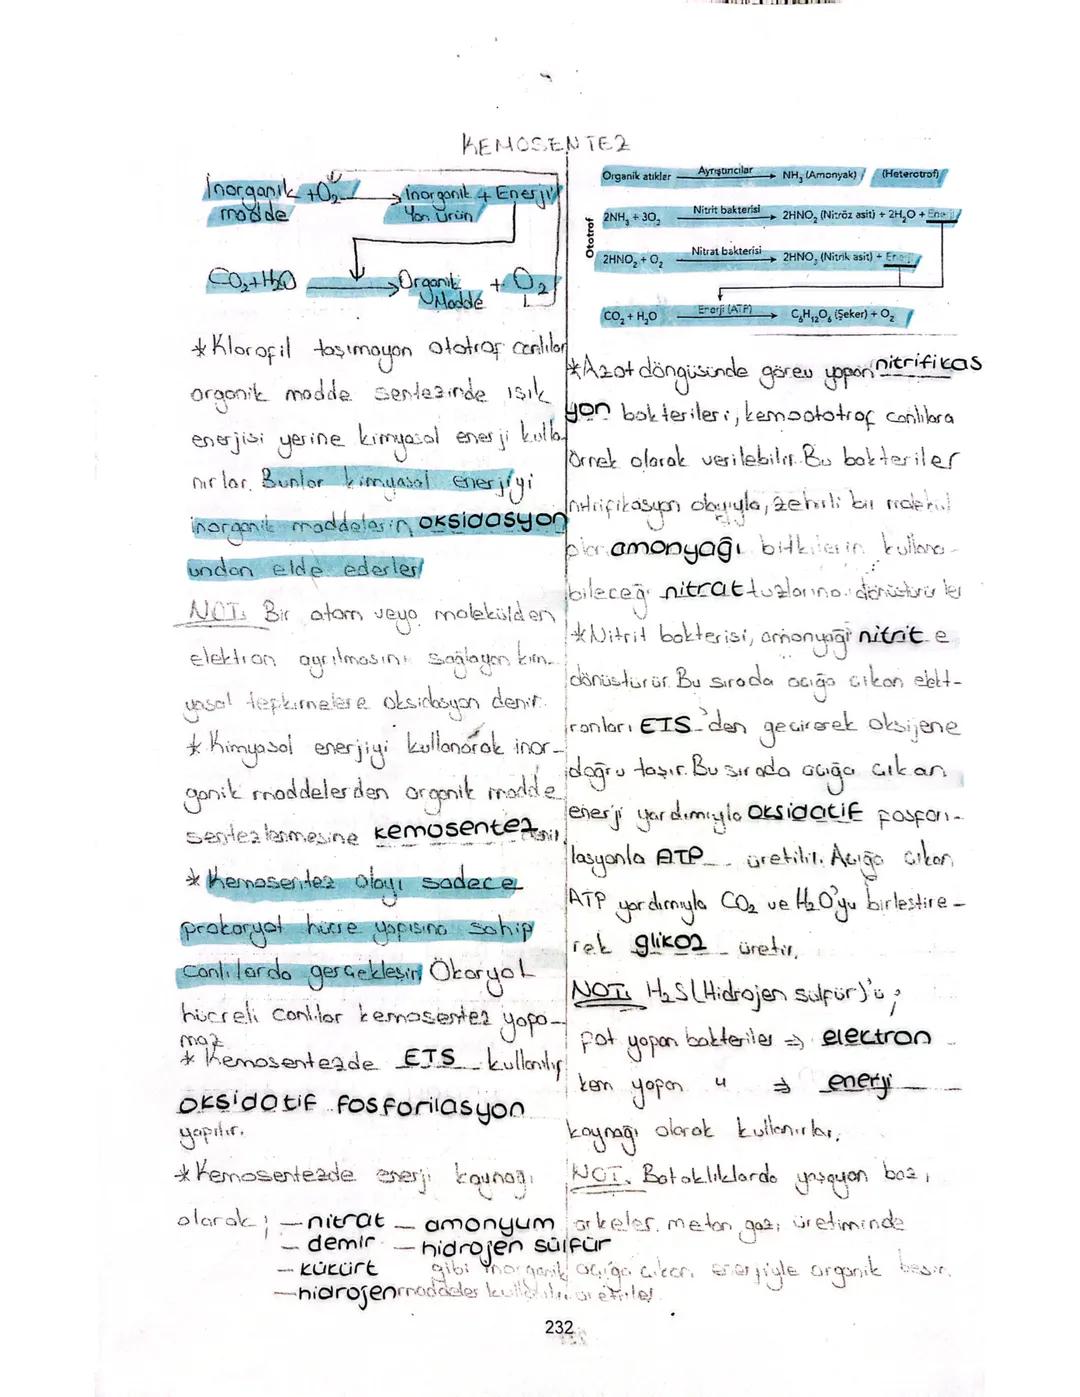 KEMOSENTEZ
İnorganik + O₂ → inorganik + Enerji
madde Yan ürün
CO₂+H₂O → Organik + O₂
Madde
*Klorofil taşımayan ototrof canlılar
organik madde sentezinde ışık
enerjisi yerine kimyasal enerji kulla
nırlar. Bunlar kimyasal enerjiyi
inorganik maddelerin oksidasyon
undan elde ederler
NOT: Bir atom veya molekülden
elektron ayrılmasını sağlayan kim-
yasal tepkimelere oksidasyon denir.
* Kimyasal enerjiyi kullanarak inor-
ganik maddelerden organik madde
sentezlenmesine kemosentez denir.
* Kemosentez olayı sadece
prokaryot hücre yapısına sahip
canlılarda gerçekleşir. Ökaryot
hücreli canlılar kemosentez yapa-
maz
* Kemosentezde ETS kullanılır
oksidatif fosforilasyon
yapılır.
*Kemosentezde enerji kaynağı
olarak; – nitrat – amonyum
– demir – hidrojen sülfür
– kükürt gibi inorganik
– hidrojen maddeler kullanılır
Organik atıklar Ayrıştırıcılar → NH₃ (Amonyak) (Heterotrof)
Ototrof
2NH₃ + 3O₂ Nitrit bakterisi → 2HNO₂ (Nitröz asit) + 2H₂O + Enerji
2HNO₂ + O₂ Nitrat bakterisi → 2HNO₃ (Nitrik asit) + Enerji
CO₂ + H₂O Enerji (ATP) → C₆H₁₂O₆ (Şeker) + O₂
*Azot döngüsünde görev yapan nitrifikas
yon bakterileri, kemoototrof canlılara
örnek olarak verilebilir. Bu bakteriler
nitrifikasyon olayıyla, zehirli bir molekül
olan amonyağı bitkilerin kullana-
bileceği nitrat tuzlarına dönüştürürler
*Nitrit bakterisi, amonyağı nitrit e
dönüştürür. Bu sırada açığa çıkan elekt-
ronları ETS'den geçirerek oksijene
doğru taşır. Bu sırada açığa çıkan
enerji yardımıyla oksidatif fosfori-
lasyonla ATP üretilir. Açığa çıkan
ATP yardımıyla CO₂ ve H₂O'yu birleştire-
rek glikoz üretir.
NOT: H₂S (Hidrojen sülfür)'ü;
fot yapan bakteriler ⇒ elektron
kem yapan " ⇒ enerji
kaynağı olarak kullanırlar.
NOT: Bataklıklarda yaşayan bazı
arkeler metan gazı üretiminde
açığa çıkan enerjiyle organik besin
üretirler
232